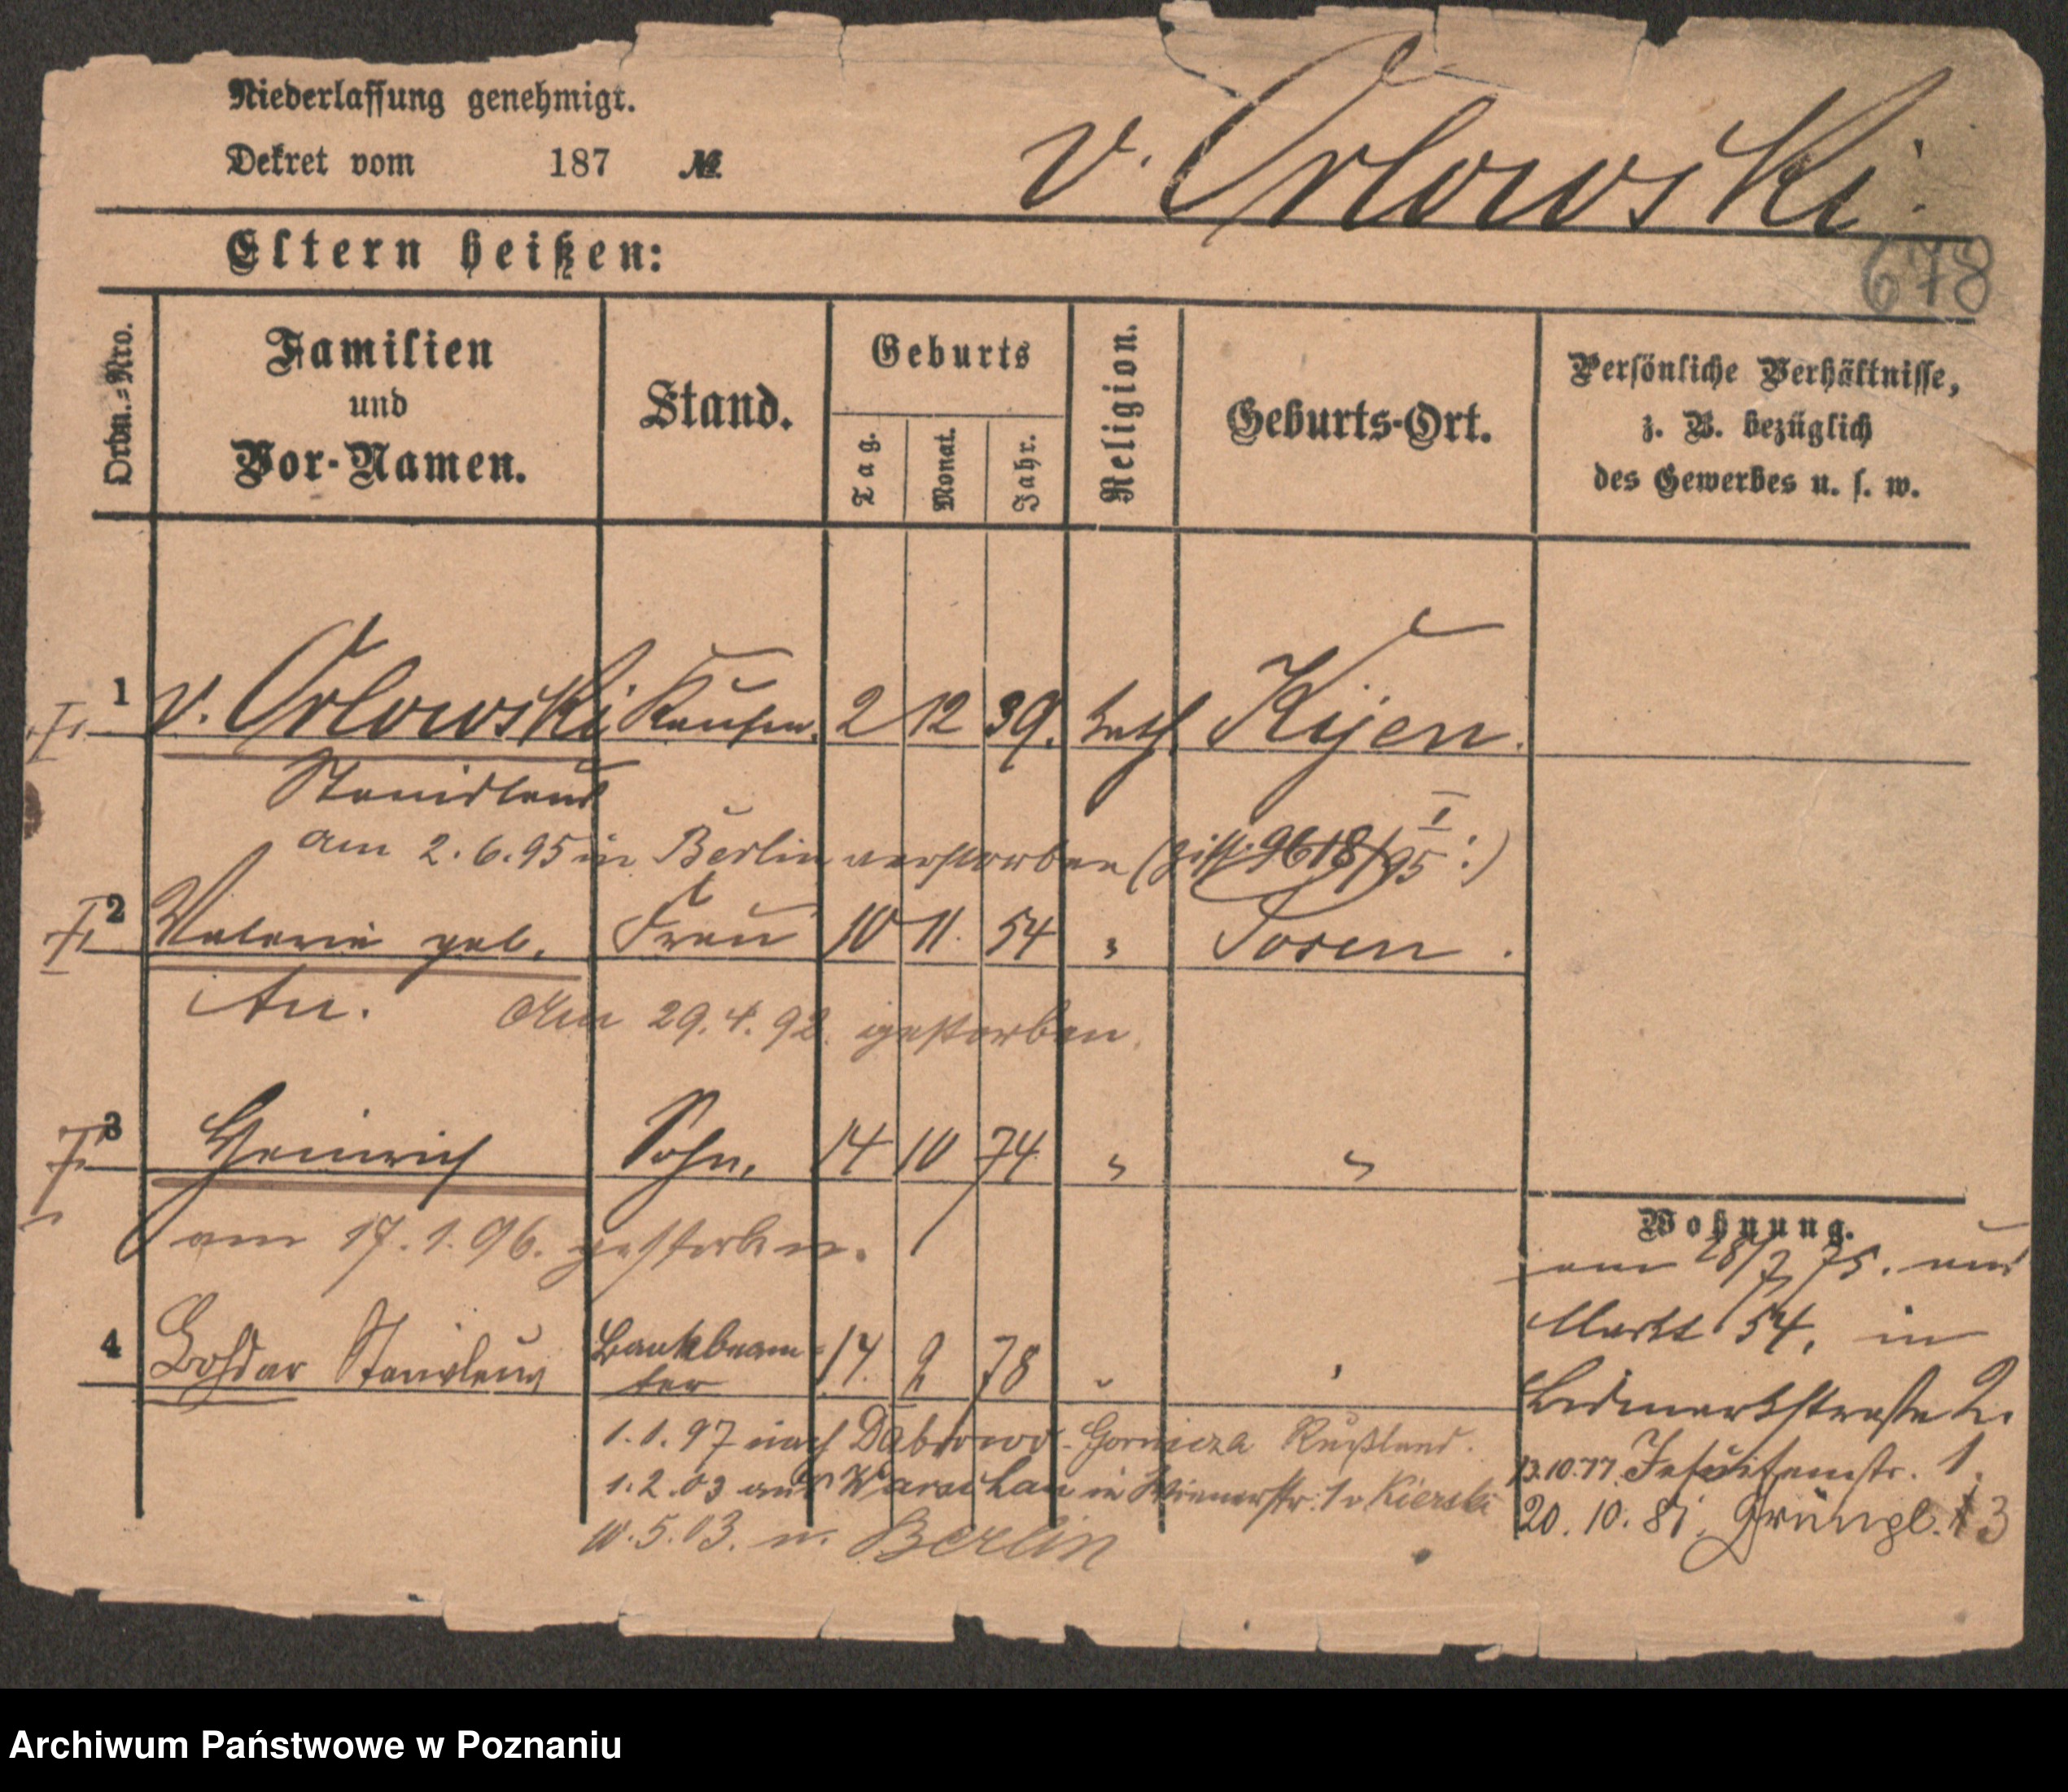 Niederlassung genehmigt.
Dekret vom 187 №
v. Orlowski.
678
Eltern heißen:
Ordn.-Nro.
Familien
und
Vor-Namen.
Stand.
Geburts
Tag.
Monat.
Jahr.
Religion.
Geburts-Ort.
Persönliche Verhältnisse,
z. B. bezüglich
des Gewerbes u. s. w.
1 v. Orlowski Kaufm. 2 12 39. kath. Kijen.
Stanislaus
am 2.6.95 in Berlin verstorben (9618/95 I :)
2 Valerie geb. Frau 10 11. 54 " Posen.
Au. Am 29.4.92. gestorben.
3 Heinrich Sohn. 14 10 74 " "
am 17.1.96. gestorben.
Wohnung.
am 28/7 75. aus
Markt 54, in
Bismarkstraße 2.
13.10.77 Jesuitenstr. 1.
20.10.81. Grünepl. 3
4 Bohdar Stanislaus Bankbeam=
ter 14. 2 78 " "
1.1.97 nach Dabrowo-Gornicza Rußland.
1.2.03 aus Warschau in Wienerstr. 1 v Kierski
10.5.03. n. Berlin
Archiwum Państwowe w Poznaniu